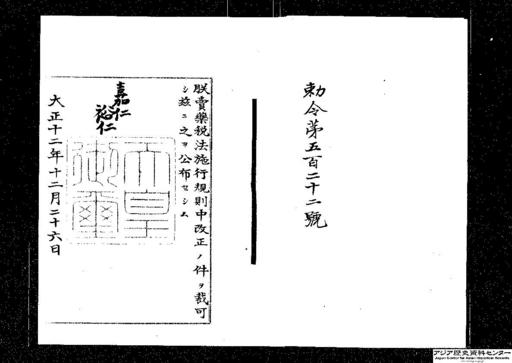 勅令第五百二十二號
朕賣藥税法施行規則中改正ノ件ヲ裁可
シ茲ニ之ヲ公布セシム
嘉仁
裕仁
天皇御璽
大正十二年十二月二十六日
アジア歴史資料センター
Japan Center for Asian Historical Records